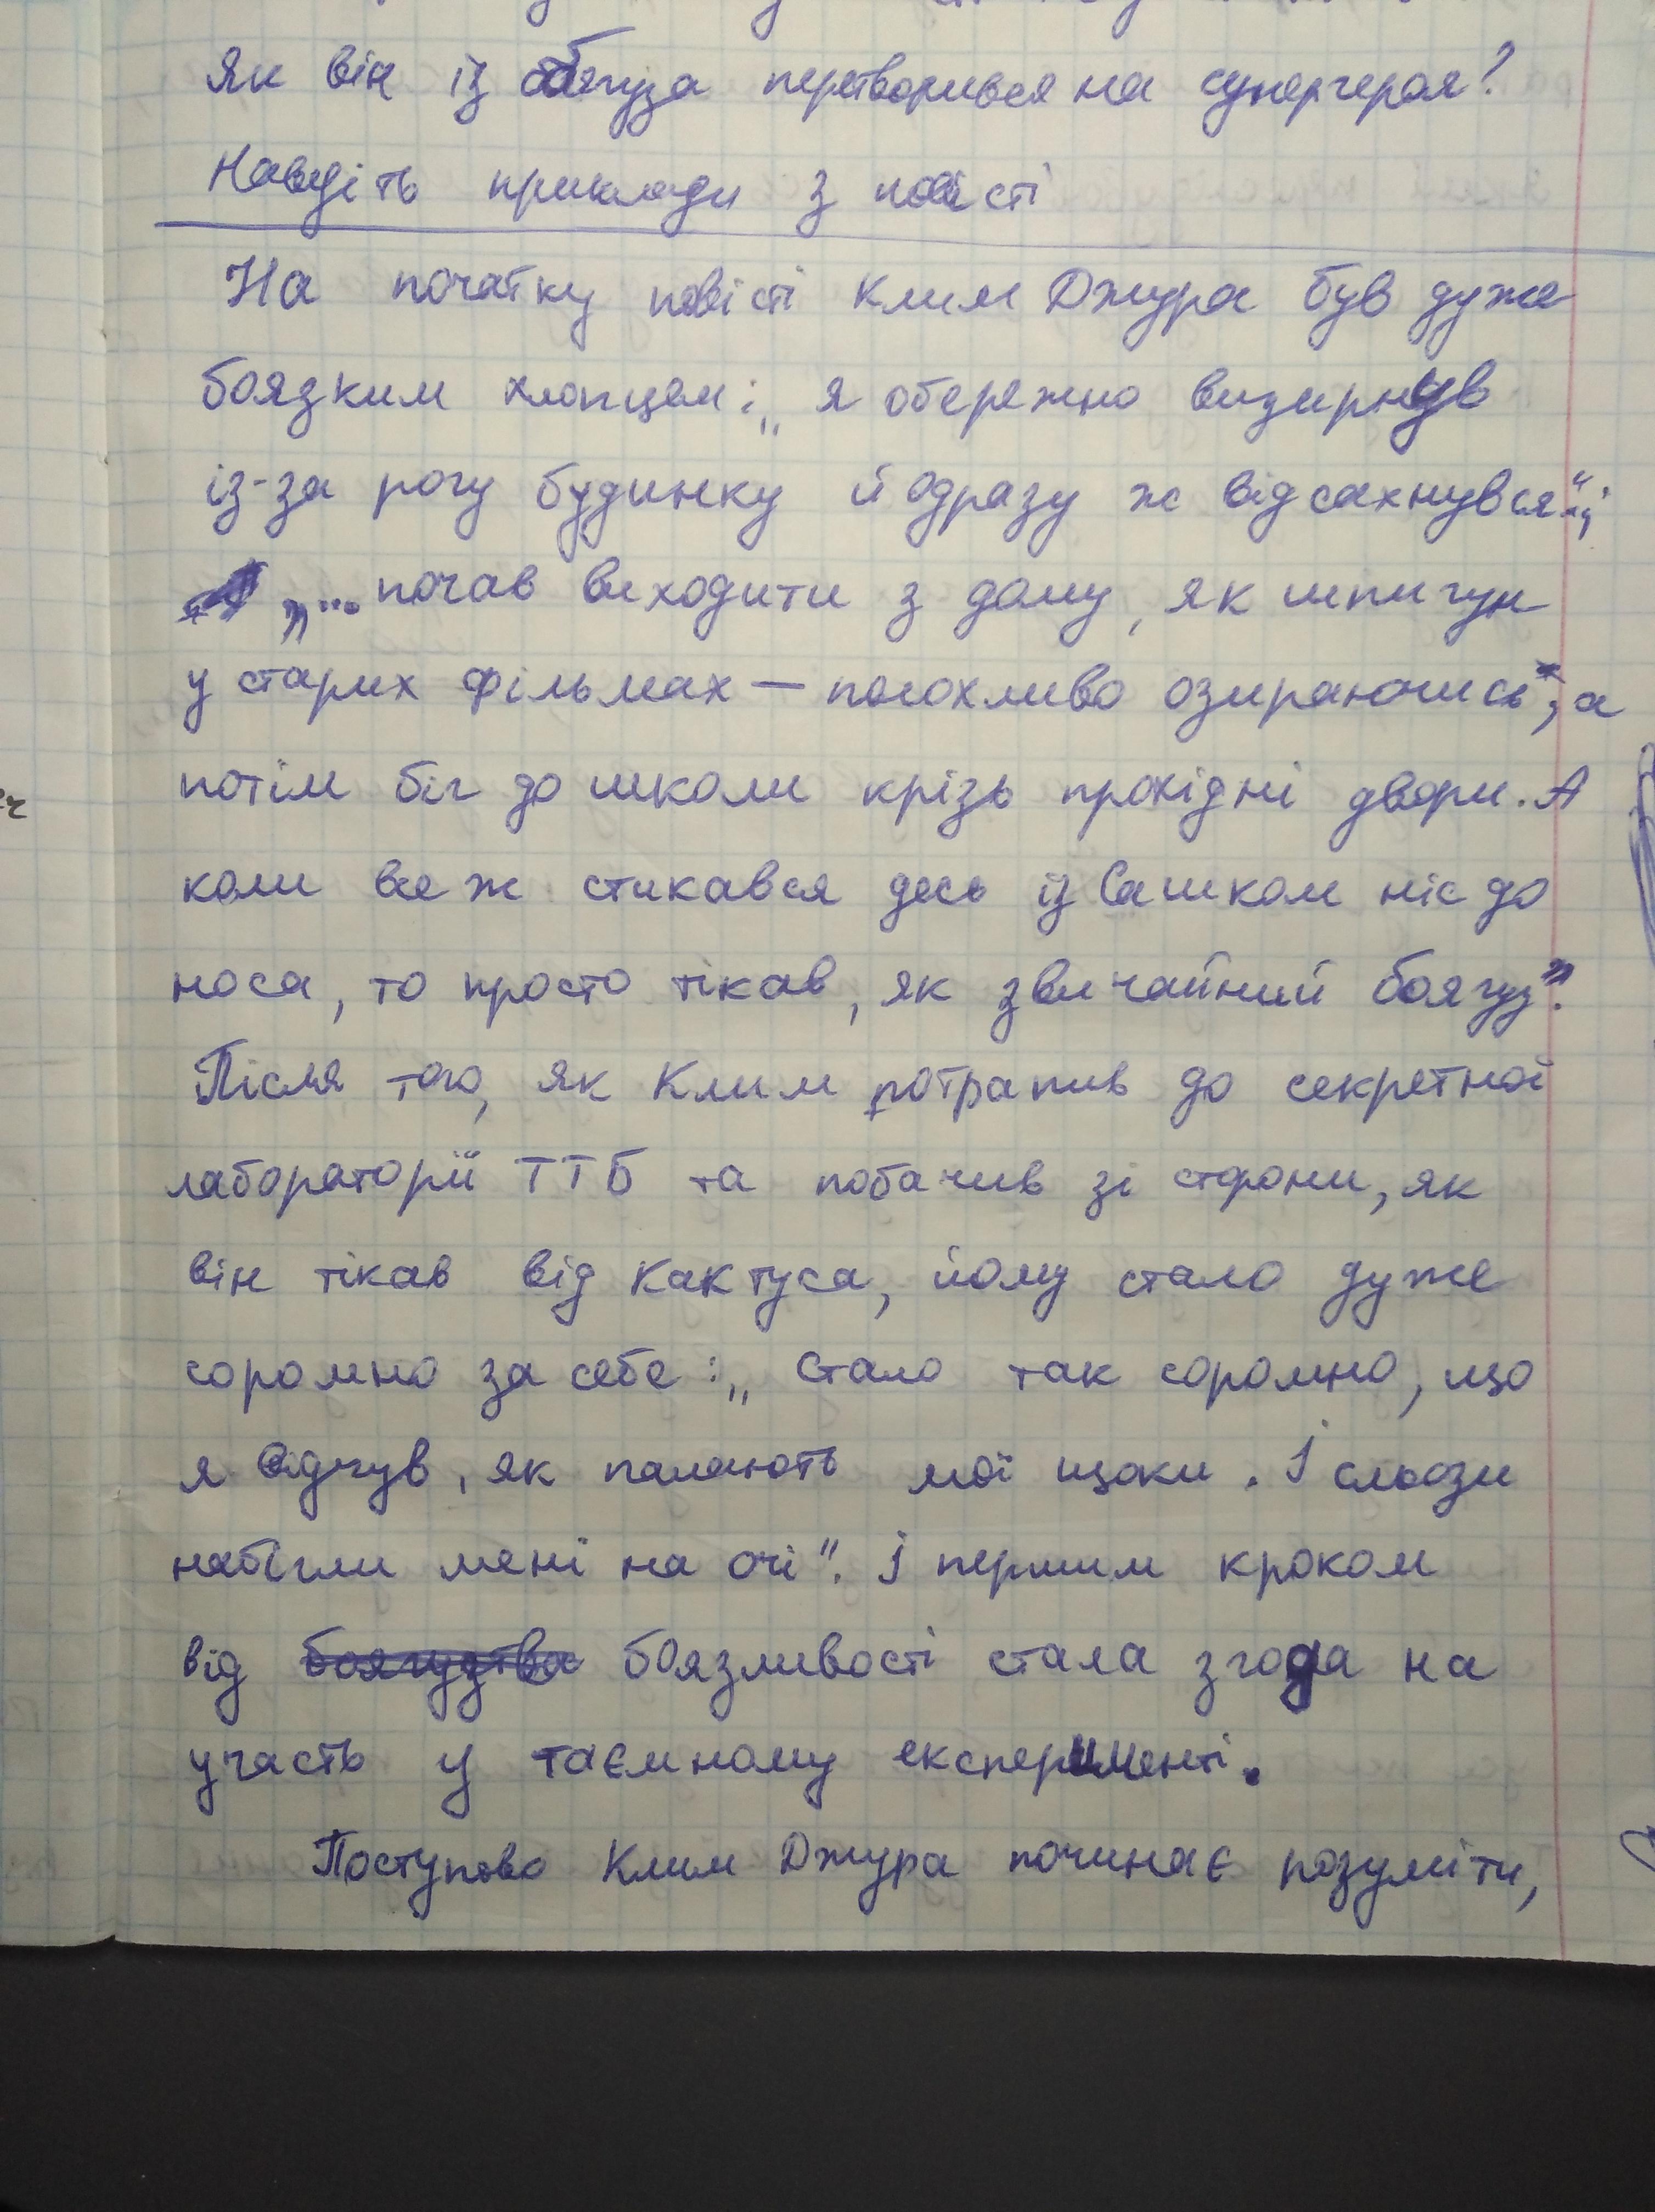 Як він із боягуза перетворився на супергероя?
Наведіть приклади з повісті
На початку повісті Клим Джура був дуже
боязким хлопцем: „я обережно визирнув
із-за рогу будинку й одразу ж відсахнувся...“;
„... почав виходити з дому, як шпигун
у старих фільмах — полохливо озираючись, а
потім біг до школи крізь прохідні двори. А
коли все ж стикався десь із Сашком ніс до
носа, то просто тікав, як звичайний боягуз".
Після того, як Клим потрапив до секретної
лабораторії ТТБ та побачив зі сторони, як
він тікав від Кактуса, йому стало дуже
соромно за себе: „Стало так соромно, що
я відчув, як палають мої щоки. І сльози
набігли мені на очі". І першим кроком
від боягузтва боязливості стала згода на
участь у таємному експерименті.
Поступово Клим Джура починає розуміти,